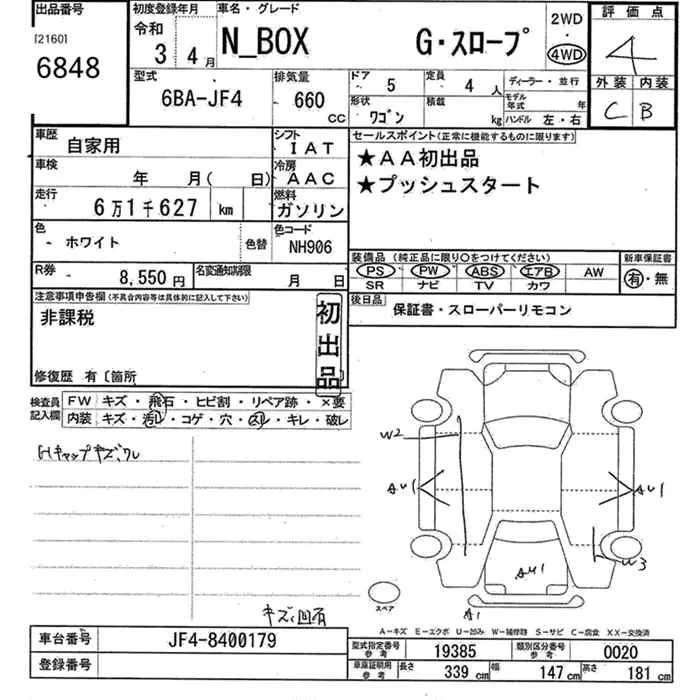 出品番号
[2160]
6848
初度登録年月
令和
3 4月
車名・グレード
N_BOX G・スロープ
2WD
・
4WD
評価点
4
外装 内装
C B
型式
6BA-JF4
排気量
660
CC
ドア 5
定員 4 人
形状 ワゴン
積載 kg
ディーラー・並行
モデル年式 年
ハンドル 左・右
車歴
自家用
シフト
IAT
車検
年 月( 日)
冷房
AAC
走行
6万1千627 km
燃料
ガソリン
色
ホワイト
色替
色コード
NH906
R券
8,550円
名変通知期限
月 日
セールスポイント(正常に機能するものに限ります)
★AA初出品
★プッシュスタート
装備品(純正品に限り○をつけてください)
PS PW ABS エアB AW
SR ナビ TV カワ
新車保証書
有・無
後日品
保証書・スローパーリモコン
注意事項申告欄(不具合内容等は具体的に記入して下さい)
非課税
初出品
修復歴 有〔箇所
検査員
記入欄
FW キズ・飛石・ヒビ割・リペア跡・×要
内装 キズ・汚レ・コゲ・穴・凹レ・キレ・破レ
W2
AU1
AU1
W3
AU1
A1
スペア
キズ、凹有
A-キズ E-エクボ U-凹み W-補修跡 S-サビ C-腐食 XX-交換済
車台番号
JF4-8400179
登録番号
型式指定番号
参考
19385
類別区分番号
参考
0020
車庫証明用
参考
長さ 339 cm
幅 147 cm
高さ 181 cm